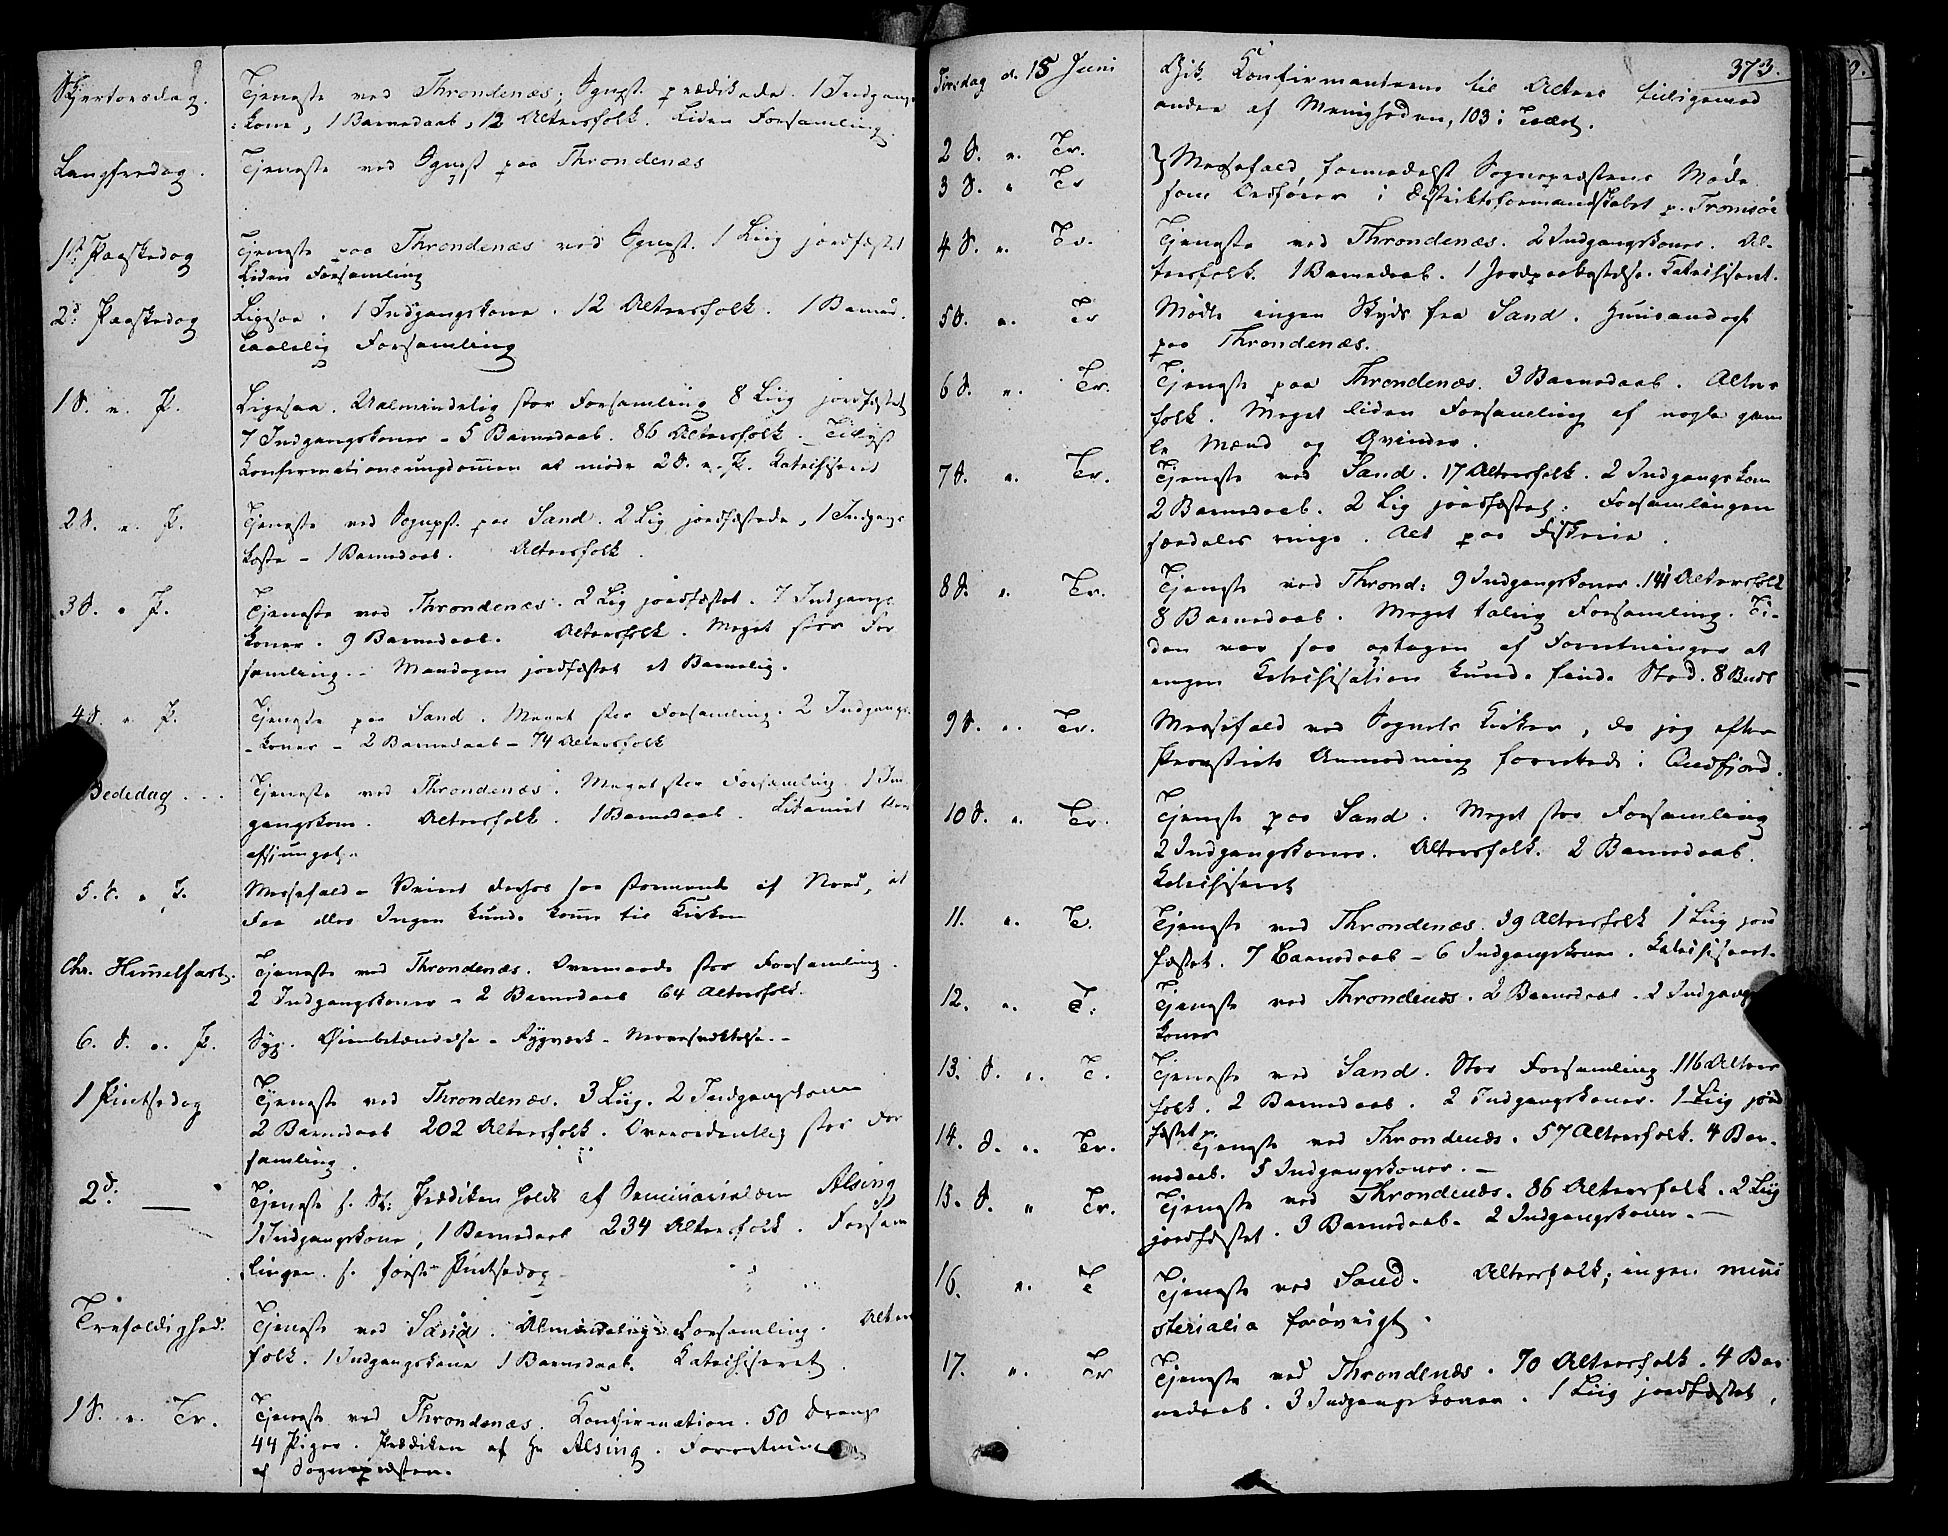 Skjertorsdag. Tjeneste ved Throndenæs; Sognpst. prædikede. 1 Indgangs
kone, 1 Barnedaab, 12 Altersfolk. Liden Forsamling.
Langfredag. Tjeneste ved Sognpst paa Throndenæs
1ste Paaskedag Tjeneste paa Throndenæs ved Sognpst. 1 Liig jordfæstet
Liden Forsamling
2d: Paaskedag Ligesaa. 1 Indgangskone. 12 Altersfolk. 1 Barned.
Taalelig Forsamling
1 S. e. P. Ligesaa. Ualmindelig stor Forsamling 8 Liig jordfæstet
7 Indgangskoner - 5 Barnedaab. 86 Altersfolk. Tilsyst
Confirmationsungdommen at møde 2 S. e. P. Katechiseret
2 S. e. P. Tjeneste ved Sognpst. paa Sand. 2 Lig jordfæstede, 1 Indgangs
kone - 1 Barnedaab. Altersfolk.
3 S. e P. Tjeneste ved Throndenæs. 2 Lig jordfæstet. 7 Indgangs
koner. 9 Barnedaab. Altersfolk. Meget stor For
samling. - Mandagen jordfæstet et Barnelig.
4 S. e P. Tjeneste paa Sand. Meget stor Forsamling. 2 Indgangs-
koner - 2 Barnedaab - 74 Altersfolk
Bededag... Tjeneste ved Throndenæs. Meget stor Forsamling. 1 Ind
gangskone. Altersfolk. 1 Barnedaab. Litaniet
afsjunget.
5. S. e P. Messefald - Veiret derhos saa stormende af Nord, at
Faa eller Ingen kunde komme til Kirken
Chr. Himmelfart. Tjeneste ved Throndenæs. Overmaade stor Forsamling.
2 Indgangskoner - 2 Barnedaab 64 Altersfolk.
6. S. e. P. Syg. Øienbetændelse - Rygværk - Nervesvækkelse. -
1 Pintsedag Tjeneste ved Throndenæs. 3 Liig. 2 Indgangskoner
2 Barnedaab 202 Altersfolk. Overordentlig stor For
samling.
2d: — Tjeneste s. St: Prædiken holdt af Seminarielærer Alsing
1 Indgangskone, 1 Barnedaab 234 Altersfolk. Forsam
lingen s. første Pintsedag
Trefoldighed. Tjeneste ved Sand. Almindelig Forsamling. Alters
folk. 1 Indgangskone 1 Barnedaab. Katechiseret.
1 S. e. Tr. Tjeneste ved Throndenæs. Confirmation. 50 Drenge
44 Piger. Prædiken af Hr Alsing. Forretninger
af Sognepræsten.
373.
Torsdag d. 15 Juni Gik Konfirmanterne til Alters tilligemed
andre af Menigheden, 103 i Tallet.
2 S. e. Tr. } Messefald, formedelst Sognepræstens Møde
3 S. e Tr som Ordfører i Distriktsformandskabet p. Tromsøe
4 S. e. Tr. Tjeneste ved Throndenæs. 2 Indgangskoner. Al-
tersfolk. 1 Barnedaab. 1 Jordpaakastelse. Katechiseret.
5 S. e. Tr Mødte ingen Skyds fra Sand. Huusandagt
paa Throndenæs.
6 S. e. Tr. Tjeneste paa Throndenæs. 3 Barnedaab. Alters
folk. Meget liden Forsamling af nogle gam
le Mænd og Qvinder.
7 S. e. Tr. Tjeneste ved Sand. 17 Altersfolk. 2 Indgangskoner
2 Barnedaab. 2 Lig jordfæstet. Forsamlingen
særdeles ringe. Alt paa Fiskerie.
8 S. e. Tr. Tjeneste ved Thrond: 9 Indgangskoner. 141 Altersfolk
8 Barnedaab. Meget talrig Forsamling. Ti-
den var saa optagen af Forretninger at
ingen Katechisation kunde finde Sted.
9 S. e. Tr. Messefald ved Sognets Kirker, da jeg efter
Provstiets Anmodning forrettede i Qvædfjord.
10 S. e. Tr. Tjeneste paa Sand. Meget stor Forsamling
2 Indgangskoner. Altersfolk. 2 Barnedaab.
Katechiseret
11. e. T. Tjeneste ved Throndenæs. 39 Altersfolk 1 Liig jord
fæstet. 7 Barnedaab - 6 Indgangskoner. Katechiseret.
12. e. T. Tjeneste ved Throndenæs. 2 Barnedaab. 2 Indgangs
koner
13. S. e. T. Tjeneste ved Sand. Stor Forsamling 116 Alters
folk. 2 Barnedaab. 2 Indgangskoner. 1 Liig jord
fæstet.
14. S. e. Tr. Tjeneste ved Throndenæs. 57 Altersfolk. 4 Bar-
nedaab. 5 Indgangskoner. —
15. S. " Tr. Tjeneste ved Throndenæs. 86 Altersfolk. 2 Liig
jordfæstet. 3 Barnedaab. 2 Indgangskoner. —
16. e. T Tjeneste ved Sand. Altersfolk; ingen mini
sterialia forøvrigt.
17. e. Tr Tjeneste ved Throndenæs. 70 Altersfolk. 4 Bar
nedaab. 3 Indgangskoner. 1 Liig jordfæstet.